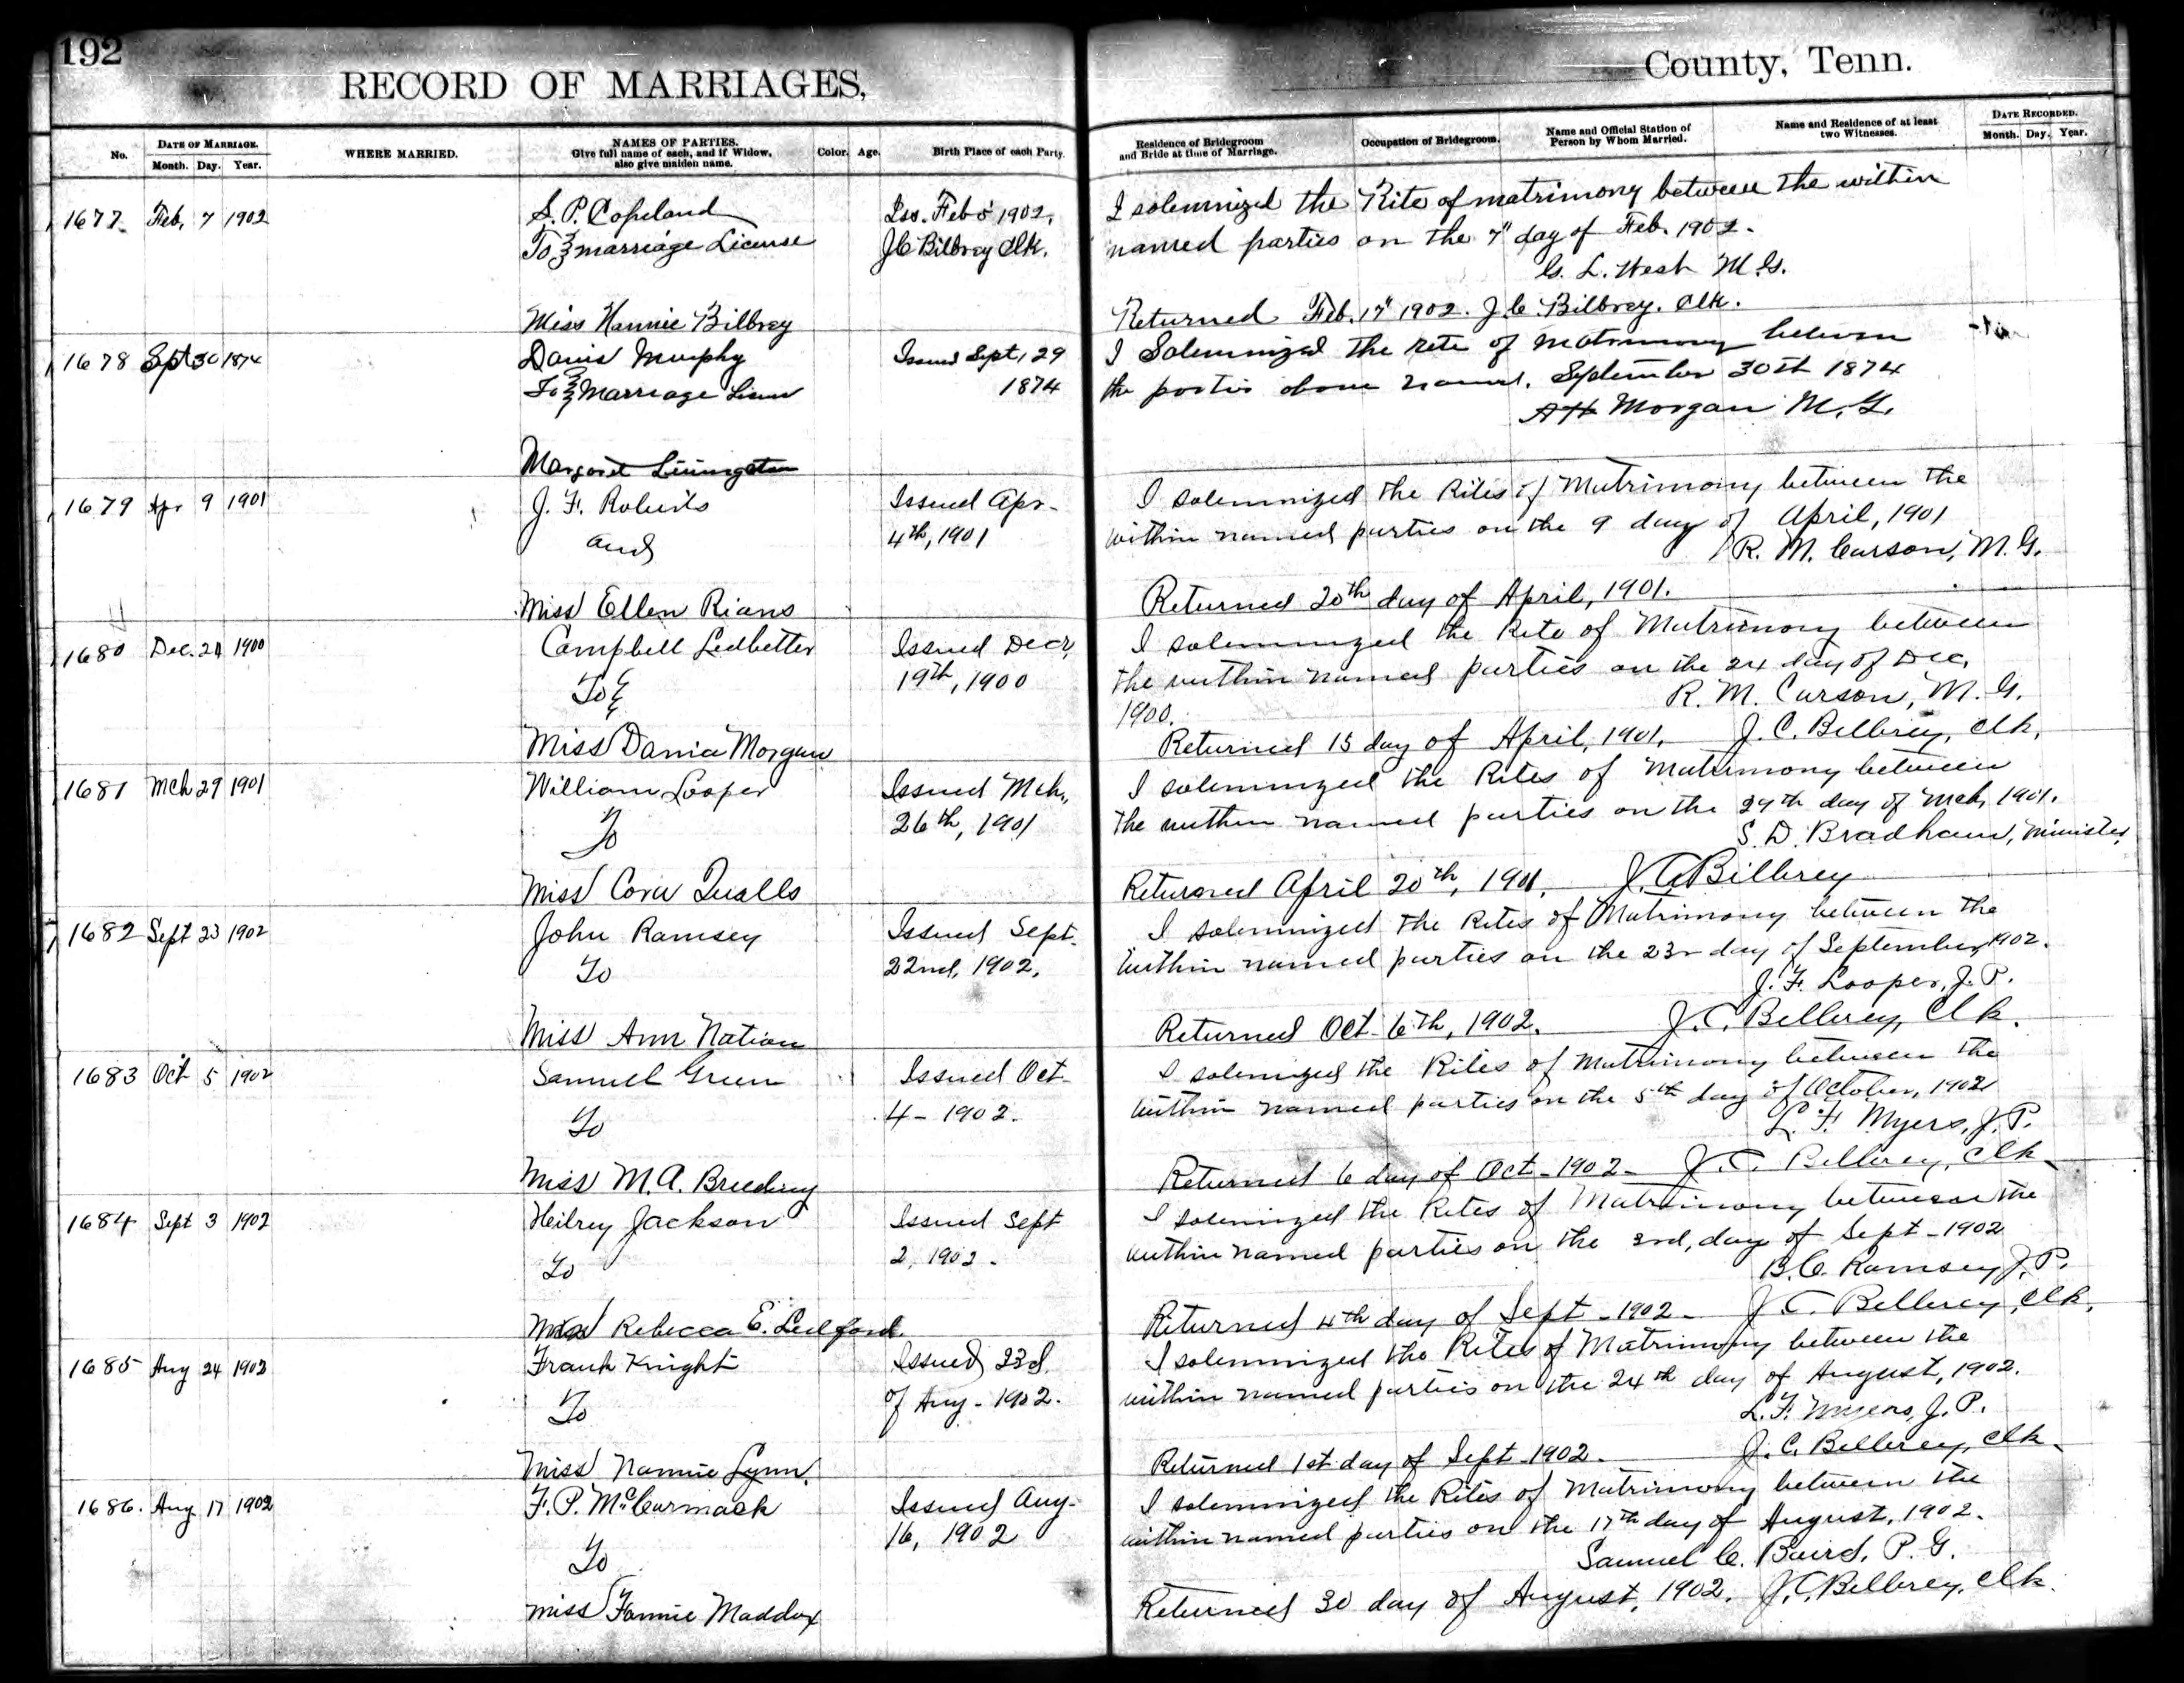 192
RECORD OF MARRIAGES,
County, Tenn.
No.
DATE OF MARRIAGE.
Month. Day. Year.
WHERE MARRIED.
NAMES OF PARTIES.
Give full name of each, and if Widow,
also give maiden name.
Color.
Age.
Birth Place of each Party.
Residence of Bridegroom
and Bride at time of Marriage.
Occupation of Bridegroom.
Name and Official Station of
Person by Whom Married.
Name and Residence of at least
two Witnesses.
DATE RECORDED.
Month. Day. Year.
1677 Feb, 7 1902
S. P. Copeland
To marriage License
Miss Nannie Bilbrey
Iss. Feb 5 1902,
J C Bilbrey Clk.
I solemnized the Rite of matrimony between the within
named parties on the 7" day of Feb. 1902.
G. L. West M.G.
Returned Feb. 17" 1902. J. C. Bilbrey. Clk.
1678 Sept 30 1874
Davis Murphy
To Marriage Licens
Margaret Livingston
Issued Sept, 29
1874
I Solemnized the rete of Matrimony between
the parties above named. September 30th 1874
AH Morgan M. G.
1679 Apr 9 1901
J. F. Roberts
and
Miss Ellen Rians
Issued Apr-
4th, 1901
I solemnized the Rites of Matrimony between the
within named parties on the 9 day of April, 1901
R. M. Carson, M. G.
Returned 20th day of April, 1901.
1680 Dec. 24 1900
Campbell Ledbetter
To
Miss Dania Morgan
Issued Decr,
19th, 1900
I solemnized the Rite of Matrimony between
the within named parties on the 24 day of Dec,
1900.
R. M. Carson, M. G.
Returned 15 day of April, 1901. J. C. Bilbrey, Clk,
1681 Mch 29 1901
William Looper
To
Miss Cora Qualls
Issued Mch,
26th, 1901
I solemnized the Rites of Matrimony between
the within named parties on the 29th day of Mch, 1901.
S. D. Bradham, Minister,
Returned April 20th, 1901. J. C. Bilbrey
1682 Sept 23 1902
John Ramsey
To
Miss Ann Nation
Issued Sept.
22nd, 1902.
I solemnized the Rites of Matrimony between the
within named parties on the 23r day of September, 1902.
J. F. Looper, J. P.
Returned Oct 6th, 1902. J. C. Bilbrey, Clk.
1683 Oct 5 1902
Samuel Green
To
Miss M. A. Breeding
Issued Oct-
4 - 1902.
I solemnized the Rites of Matrimony between the
within named parties on the 5th day of October, 1902
L. F. Myers, J. P.
Returned 6 day of Oct - 1902 - J. C. Bilbrey, Clk -
1684 Sept 3 1902
Heilrey Jackson
To
Miss Rebecca E. Ledford.
Issued Sept
2, 1902.
I solemnized the Rites of Matrimony between the
within named parties on the 3rd, day of Sept - 1902
B. C. Ramsey J. P.
Returned 4th day of Sept - 1902 - J. C. Bilbrey, Clk,
1685 Aug 24 1902
Frank Knight
To
Miss Nannie Lynn.
Issued 23d
of Aug - 1902.
I solemnized the Rites of Matrimony between the
within named parties on the 24th day of August, 1902.
L. F. Myers, J. P.
Returned 1st day of Sept - 1902. J. C. Bilbrey, Clk -
1686. Aug 17 1902
F. P. McCormack
To
Miss Fannie Maddox
Issued Aug-
16, 1902
I solemnized the Rites of Matrimony between the
within named parties on the 17th day of August, 1902.
Samuel C. Baird, P. G.
Returned 30 day of August, 1902. J. C. Bilbrey, Clk.